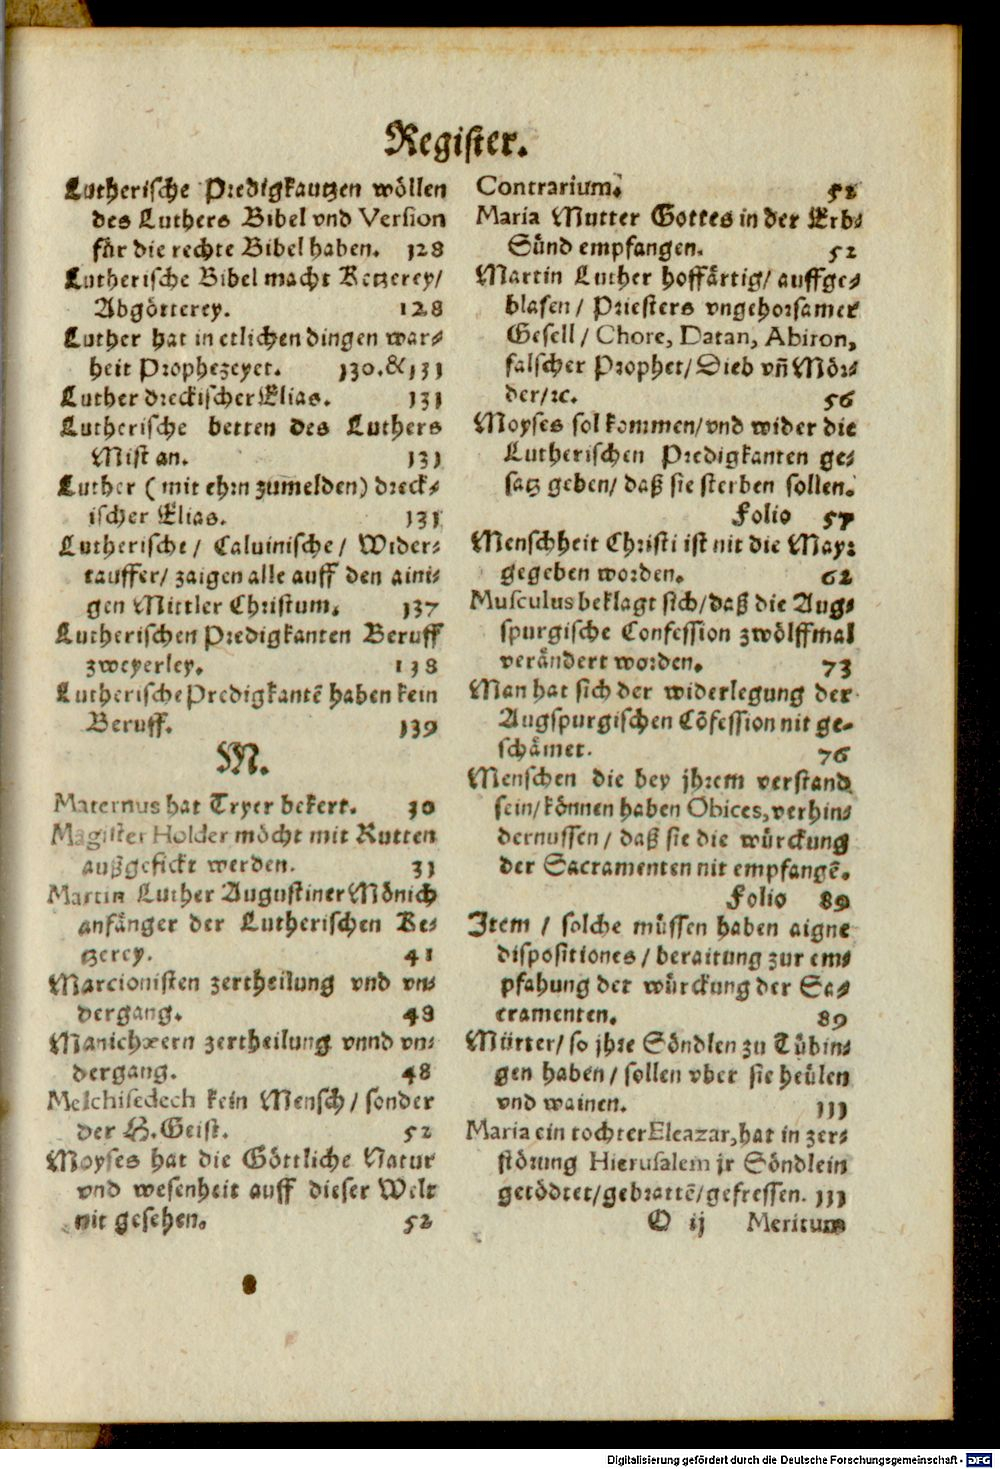 Register.
Lutherische Predigkautzen wöllen
des Luthers Bibel vnd Version
für die rechte Bibel haben. 128
Lutherische Bibel macht Ketzerey/
Abgötterey. 128
Luther hat in etlichen dingen war-
heit Prophezeyet. 130.&131
Luther dreckischer Elias. 131
Lutherische betten des Luthers
Mist an. 131
Luther (mit ehrn zumelden) dreck-
ischer Elias. 131
Lutherische/ Caluinische/ Wider-
tauffer/ zaigen alle auff den aini-
gen Mittler Christum. 137
Lutherischen Predigkanten Beruff
zweyerley. 138
Lutherische Predigkantē haben kein
Beruff. 139
M.
Maternus hat Tryer bekert. 30
Magister Holder möcht mit Rutten
außgefickt werden. 31
Martin Luther Augustiner Mönich
anfänger der Lutherischen Ke-
tzerey. 41
Marcionisten zertheilung vnd vn-
dergang. 48
Manichæern zertheilung vnnd vn-
dergang. 48
Melchisedech kein Mensch/ sonder
der H. Geist. 52
Moyses hat die Göttliche Natur
vnd wesenheit auff dieser Welt
nit gesehen. 52
Contrarium. 52
Maria Mutter Gottes in der Erb-
Sünd empfangen. 52
Martin Luther hoffärtig/ auffge-
blasen/ Priesters vngehorsamer
Gesell/ Chore, Datan, Abiron,
falscher Prophet/ Dieb vñ Mör-
der/ꝛc. 56
Moyses sol kommen/ vnd wider die
Lutherischen Predigkanten ge-
satz geben/ daß sie sterben sollen.
Folio 57
Menschheit Christi ist nit die May:
gegeben worden. 62
Musculus beklagt sich/ daß die Aug-
spurgische Confession zwölffmal
verändert worden. 73
Man hat sich der widerlegung der
Augspurgischen Cōfession nit ge-
schämet. 76
Menschen die bey jhrem verstand
sein/ können haben Obices, verhin-
dernussen/ daß sie die würckung
der Sacramenten nit empfangē.
Folio 89
Item/ solche müssen haben aigne
dispositiones/ beraitung zur em-
pfahung der würckung der Sa-
cramenten. 89
Mütter/ so jhre Söndlen zu Tübin-
gen haben/ sollen vber sie heülen
vnd wainen. 111
Maria ein tochter Eleazar, hat in zer-
störung Hierusalem jr Söndlein
getödtet/ gebrattē/ gefressen. 111
O ij Meritum
Digitalisierung gefördert durch die Deutsche Forschungsgemeinschaft - DFG